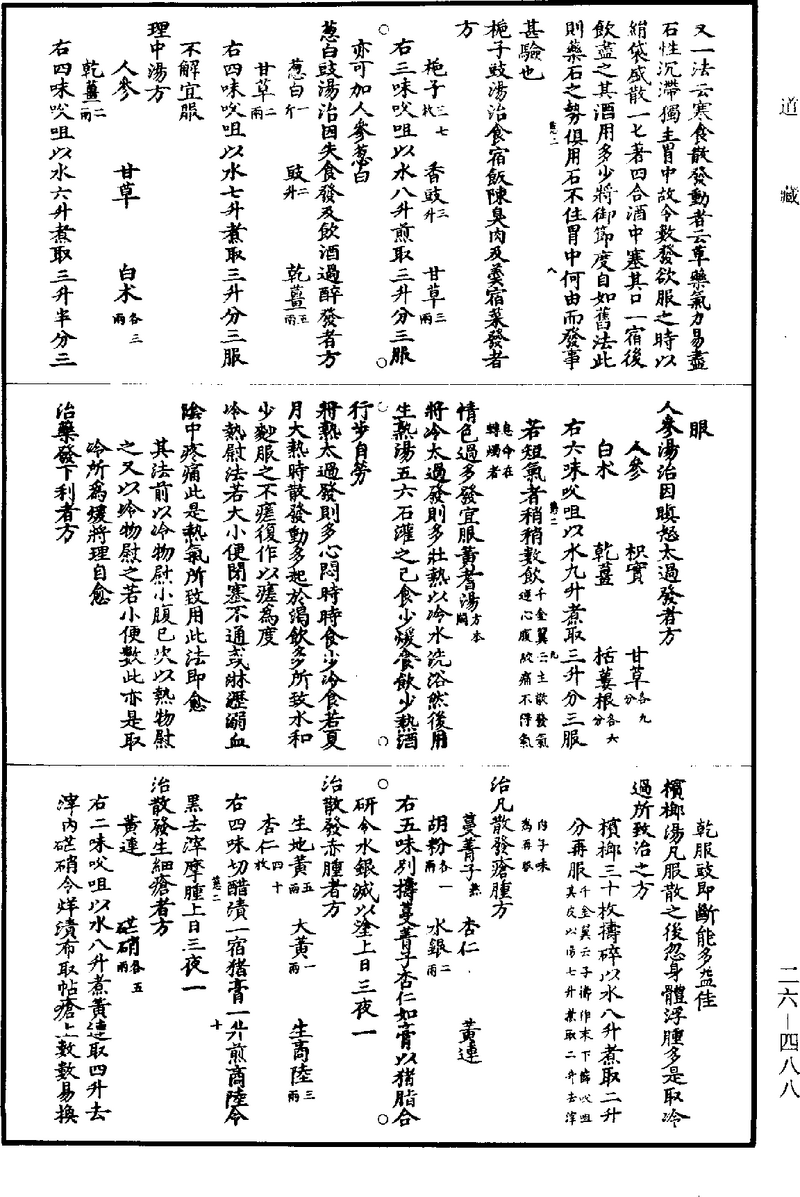 道藏
又一法云寒食散發動者云草藥氣力易盡
石性沉滯獨主胃中故令數發欲服之時以
絹袋盛散一匕著四合酒中塞其口一宿後
飲盡之其酒用多少將御節度自如舊法此
則藥石之勢俱用石不住胃中何由而發事
甚驗也
梔子豉湯治食宿飯陳臭肉及羹宿菜發者
方
梔子三七枚 香豉三升 甘草三兩
右三味㕮咀以水八升煎取三升分三服
亦可加人參蔥白
蔥白豉湯治因失食發及飲酒過醉發者方
蔥白一斤 豉二升 乾薑五兩
甘草二兩
右四味㕮咀以水七升煮取三升分三服
不解宜服
理中湯方
人參 甘草 白朮各三兩
乾薑二兩
右四味㕮咀以水六升煮取三升半分三
服
人參湯治因瞋怒太過發者方
人參 枳實 甘草各九分
白朮 乾薑 栝蔞根各六分
右六味㕮咀以水九升煮取三升分三服
若短氣者稍稍數飲千金翼云主散發氣逆心腹絞痛不得氣息命在轉燭者
情色過多發宜服黃耆湯方本闕
將冷太過發則多壯熱以冷水洗浴然後用
生熟湯五六石灌之已食少煖食飲少熱酒
行步自勞
將熱太過發則多心悶時時食少冷食若夏
月大熱時散發動多起於渴飲多所致水和
少麨服之不瘥復作以瘥為度
冷熱慰法若大小便閉塞不通或淋瀝溺血
陰中疼痛此是熱氣所致用此法即愈
其法前以冷物慰小腹已次以熱物慰
之又以冷物慰之若小便數此亦是取
冷所為煖將理自愈
治藥發下利者方
乾服豉即斷能多益佳
檳榔湯凡服散之後忽身體浮腫多是取冷
過所致治之方
檳榔三十枚擣碎以水八升煮取二升
分再服千金翼云子擣作末下篩㕮咀其皮以湯七升煮取二升去滓內子味為再服
治凡散發瘡腫方
蔓菁子熬 杏仁 黃連
胡粉各一兩 水銀二兩
右五味別擣蔓菁子杏仁如膏以猪脂合
研令水銀滅以塗上日三夜一
治散發赤腫者方
生地黃五兩 大黃一兩 生商陸三兩
杏仁四十枚
右四味切醋漬一宿猪膏一升煎商陸令
黑去滓摩腫上日三夜一
治散發生細瘡者方
黃連 硭硝各五兩
右二味㕮咀以水八升煮黃連取四升去
滓內硭硝令烊漬布取帖瘡上數數易換
二六—四八八